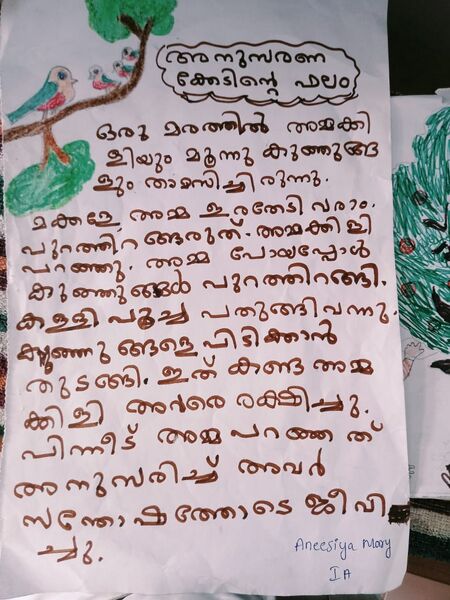 അനുസരണ
ക്കേടിന്റെ ഫലം
ഒരു മരത്തിൽ അമ്മക്കി
ളിയും മൂന്നു കുഞ്ഞുങ്ങ
ളും താമസിച്ചിരുന്നു.
മക്കളേ, അമ്മ ഇരതേടി വരാം.
പുറത്തിറങ്ങരുത്. അമ്മക്കിളി
പറഞ്ഞു. അമ്മ പോയപ്പോൾ
കുഞ്ഞുങ്ങൾ പുറത്തിറങ്ങി.
കള്ളി പൂച്ച പതുങ്ങി വന്നു.
കുഞ്ഞുങ്ങളെ പിടിക്കാൻ
തുടങ്ങി. ഇത് കണ്ട അമ്മ
ക്കിളി അവരെ രക്ഷിച്ചു.
പിന്നീട് അമ്മ പറഞ്ഞത്
അനുസരിച്ച് അവർ
സന്തോഷത്തോടെ ജീവി
ച്ചു.
Aneesiya Mary
IA